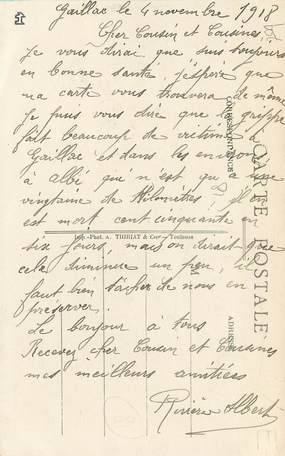 Gaillac le 4 novembre 1918
Cher Cousin et Cousines
Je vous dirai que suis toujours
en bonne santé, j'éspère que
ma carte vous trouvera de même
Je puis vous dire que la grippe
fait beaucoup de victimes
Gaillac et dans les environs
à Albi qui n'est qu'a une
vingtaine de Kilomètres, il en
est mort cent cinquante en
dix jours, mais on dirait que
cela diminue un peu, il
faut bien tâcher de nous en
préserver.
Le bonjour à tous
Recevez cher Cousin et Cousines
mes meilleurs amitiées
Rivière Albert
Imp.-Phot. A. THIRIAT & Cie — Toulouse
CARTE POSTALE
CORRESPONDANCE
ADRESSE